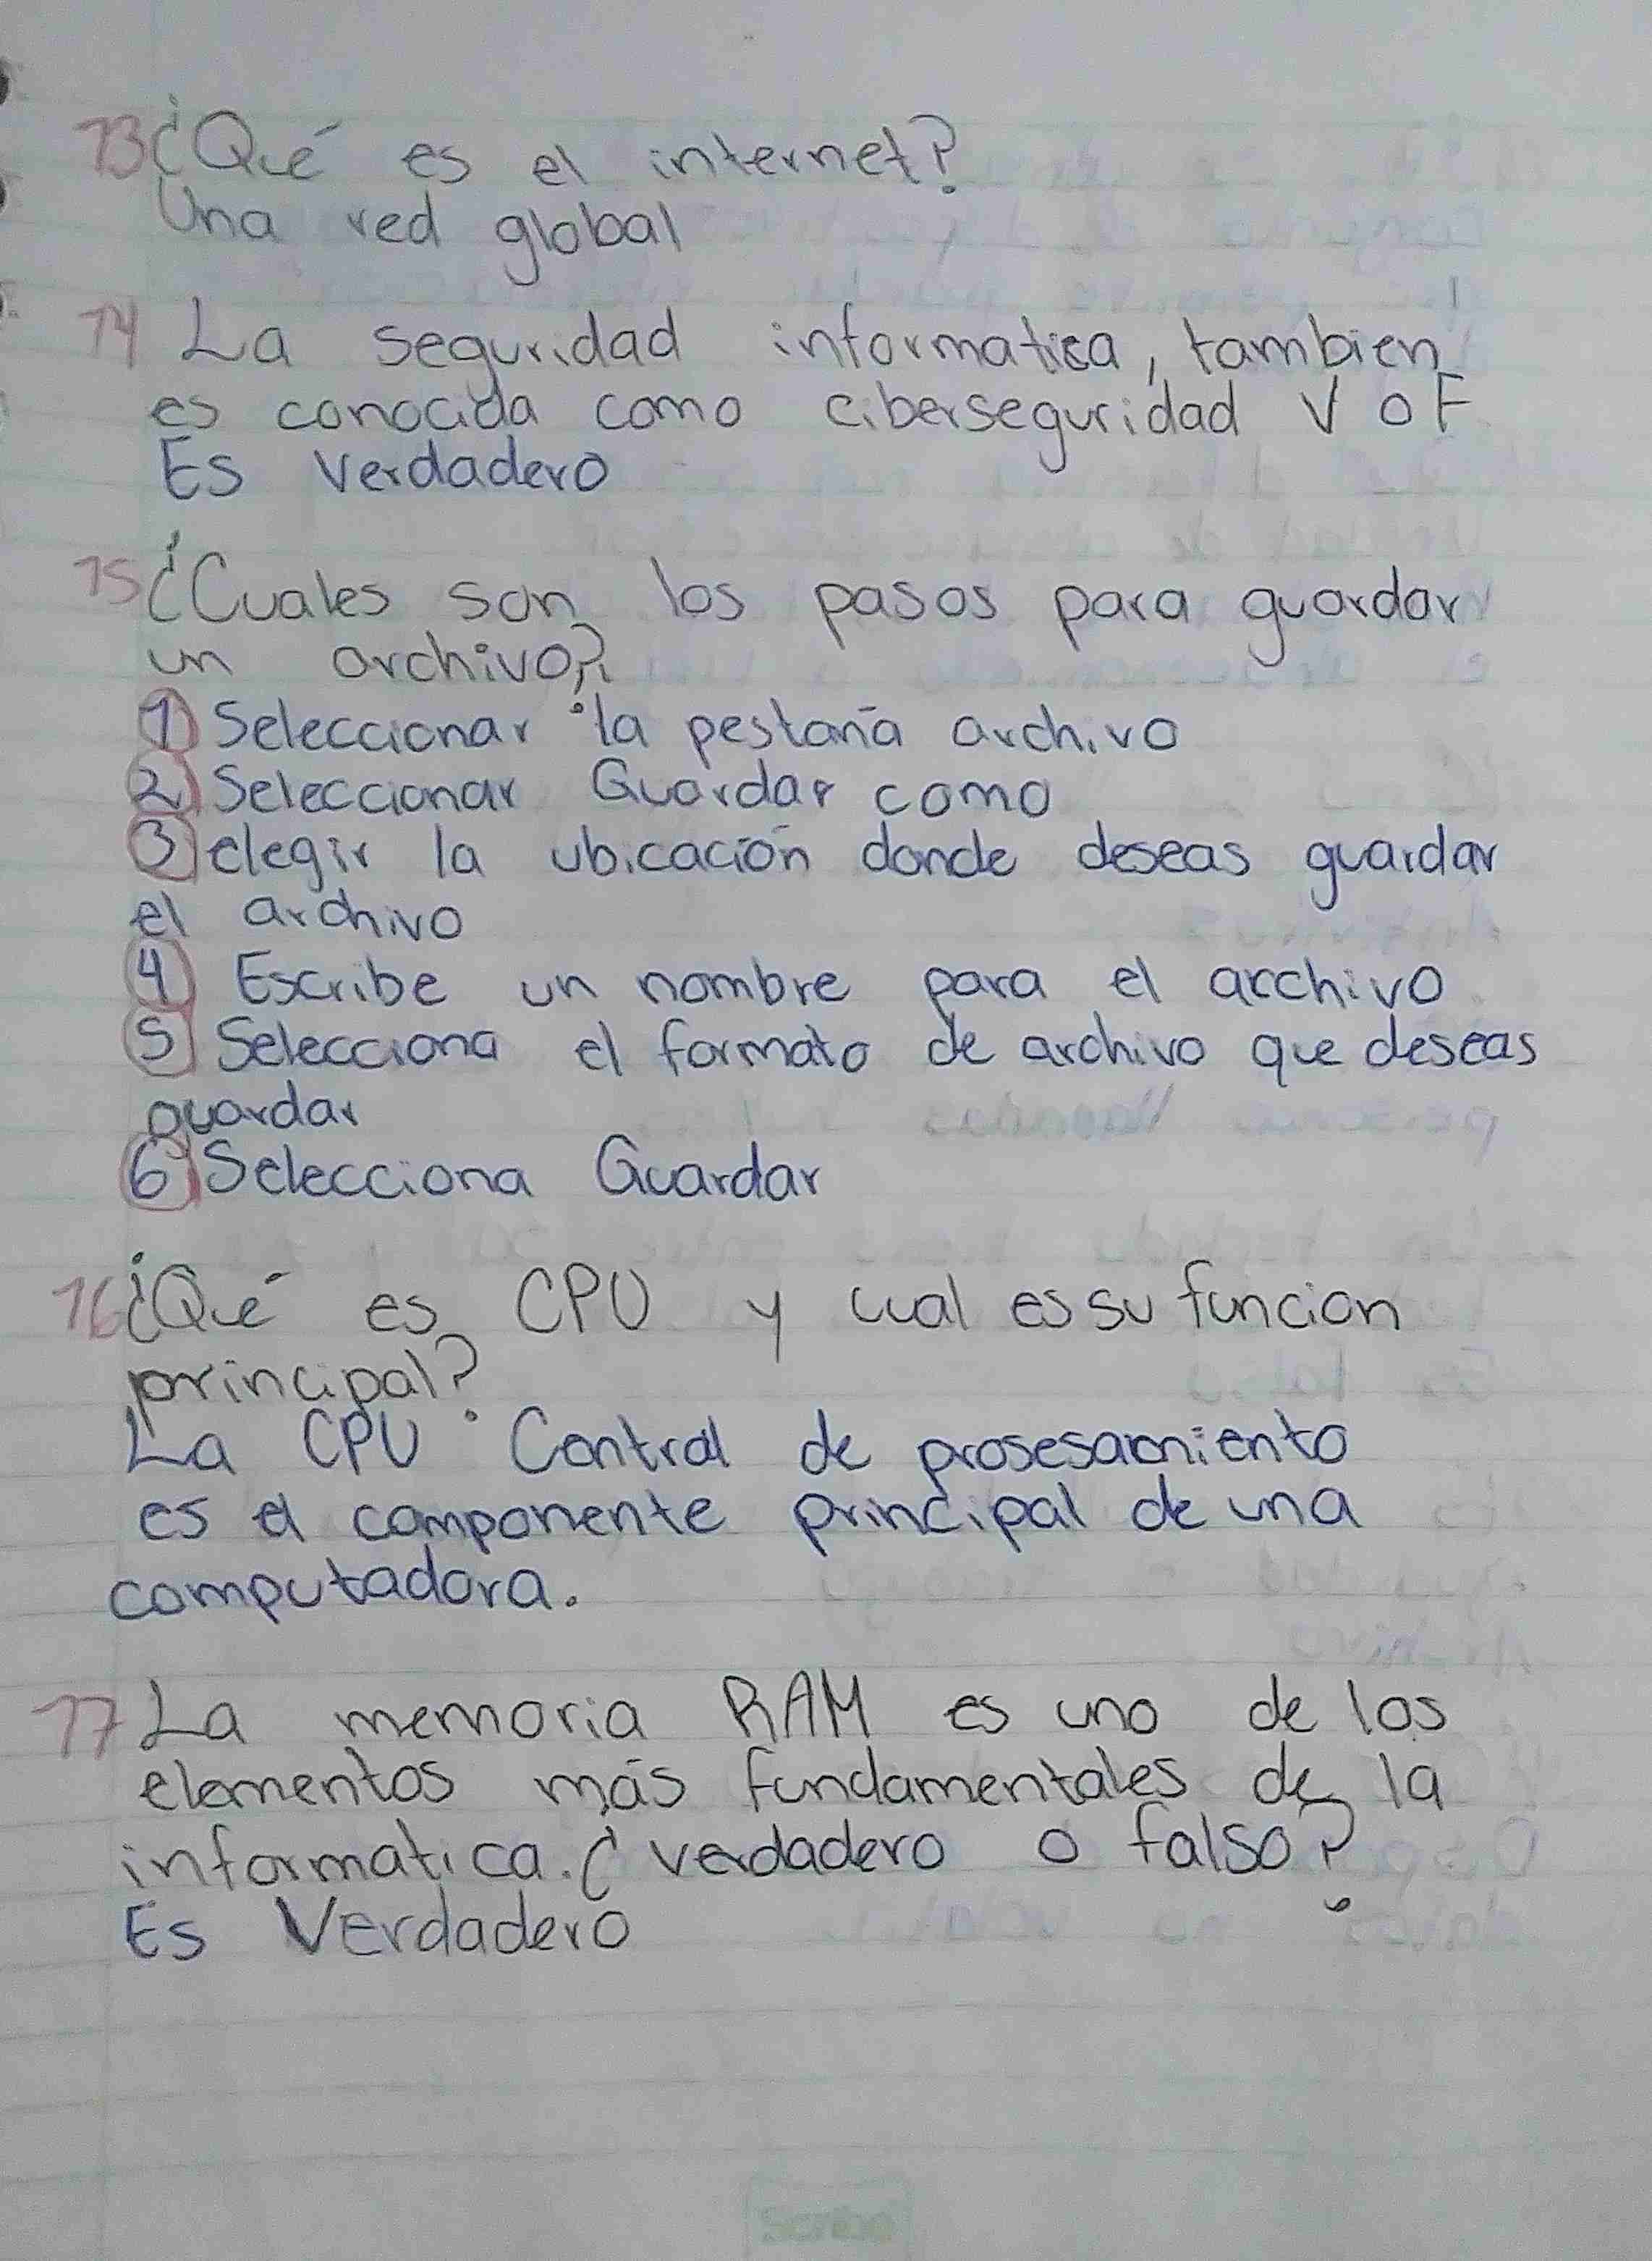 13 ¿Qué es el internet?
Una red global
14 La seguridad informatica, tambien
es conocida como ciberseguridad V o F
Es Verdadero
15 ¿Cuales son los pasos para guardar
un archivo?
1) Seleccionar la pestaña archivo
2) Seleccionar Guardar como
3) elegir la ubicación donde deseas guardar
el archivo
4) Escribe un nombre para el archivo
5) Selecciona el formato de archivo que deseas
guardar
6) Selecciona Guardar
16 ¿Qué es CPU y cual es su funcion
principal?
La CPU Control de prosesamiento
es el componente principal de una
computadora.
17 La memoria RAM es uno de los
elementos más fundamentales de la
informatica. ¿verdadero o falso?
Es Verdadero
Scribe